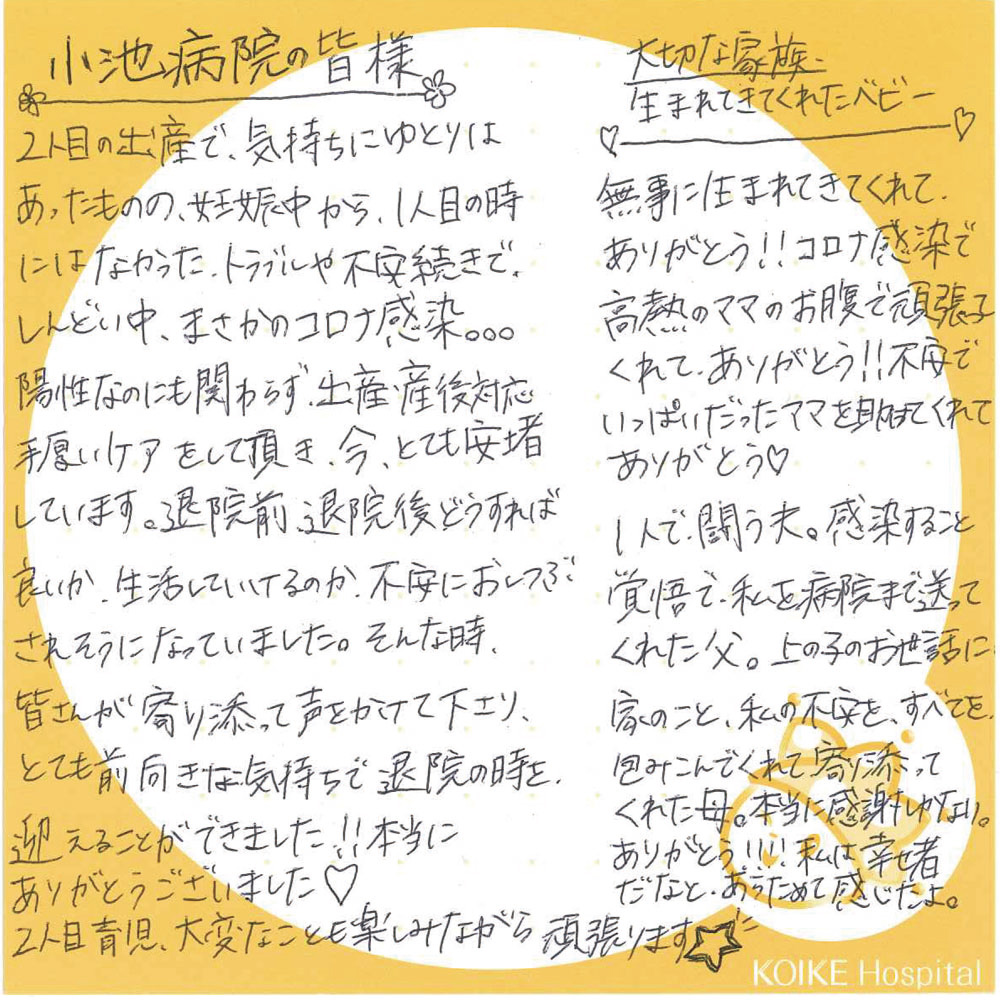 小池病院の皆様
2人目の出産で、気持ちにゆとりは
あったものの、妊娠中から、1人目の時
にはなかった、トラブルや不安続きで、
しんどい中、まさかのコロナ感染。。。
陽性なのにも関わらず、出産、産後対応
手厚いケアをして頂き、今、とても安堵
しています。退院前、退院後どうすれば
良いか、生活していけるのか、不安におしつぶ
されそうになっていました。そんな時、
皆さんが寄り添って声をかけて下さり、
とても前向きな気持ちで退院の時を、
迎えることができました!!本当に
ありがとうございました♡
2人目育児、大変なことも楽しみながら頑張ります☆
大切な家族、
生まれてきてくれたベビー
無事に生まれてきてくれて、
ありがとう!!コロナ感染で
高熱のママのお腹で頑張っ
くれて、ありがとう!!不安で
いっぱいだったママを助けてくれて
ありがとう♡
1人で、闘う夫。感染すること
覚悟で、私を病院まで送って
くれた父。上の子のお世話に、
家のこと、私の不安を、すべてを、
包みこんでくれて寄り添って
くれた母。本当に感謝しかない。
ありがとう!!!!私は幸せ者
だなと、あらためて感じたよ。
KOIKE Hospital